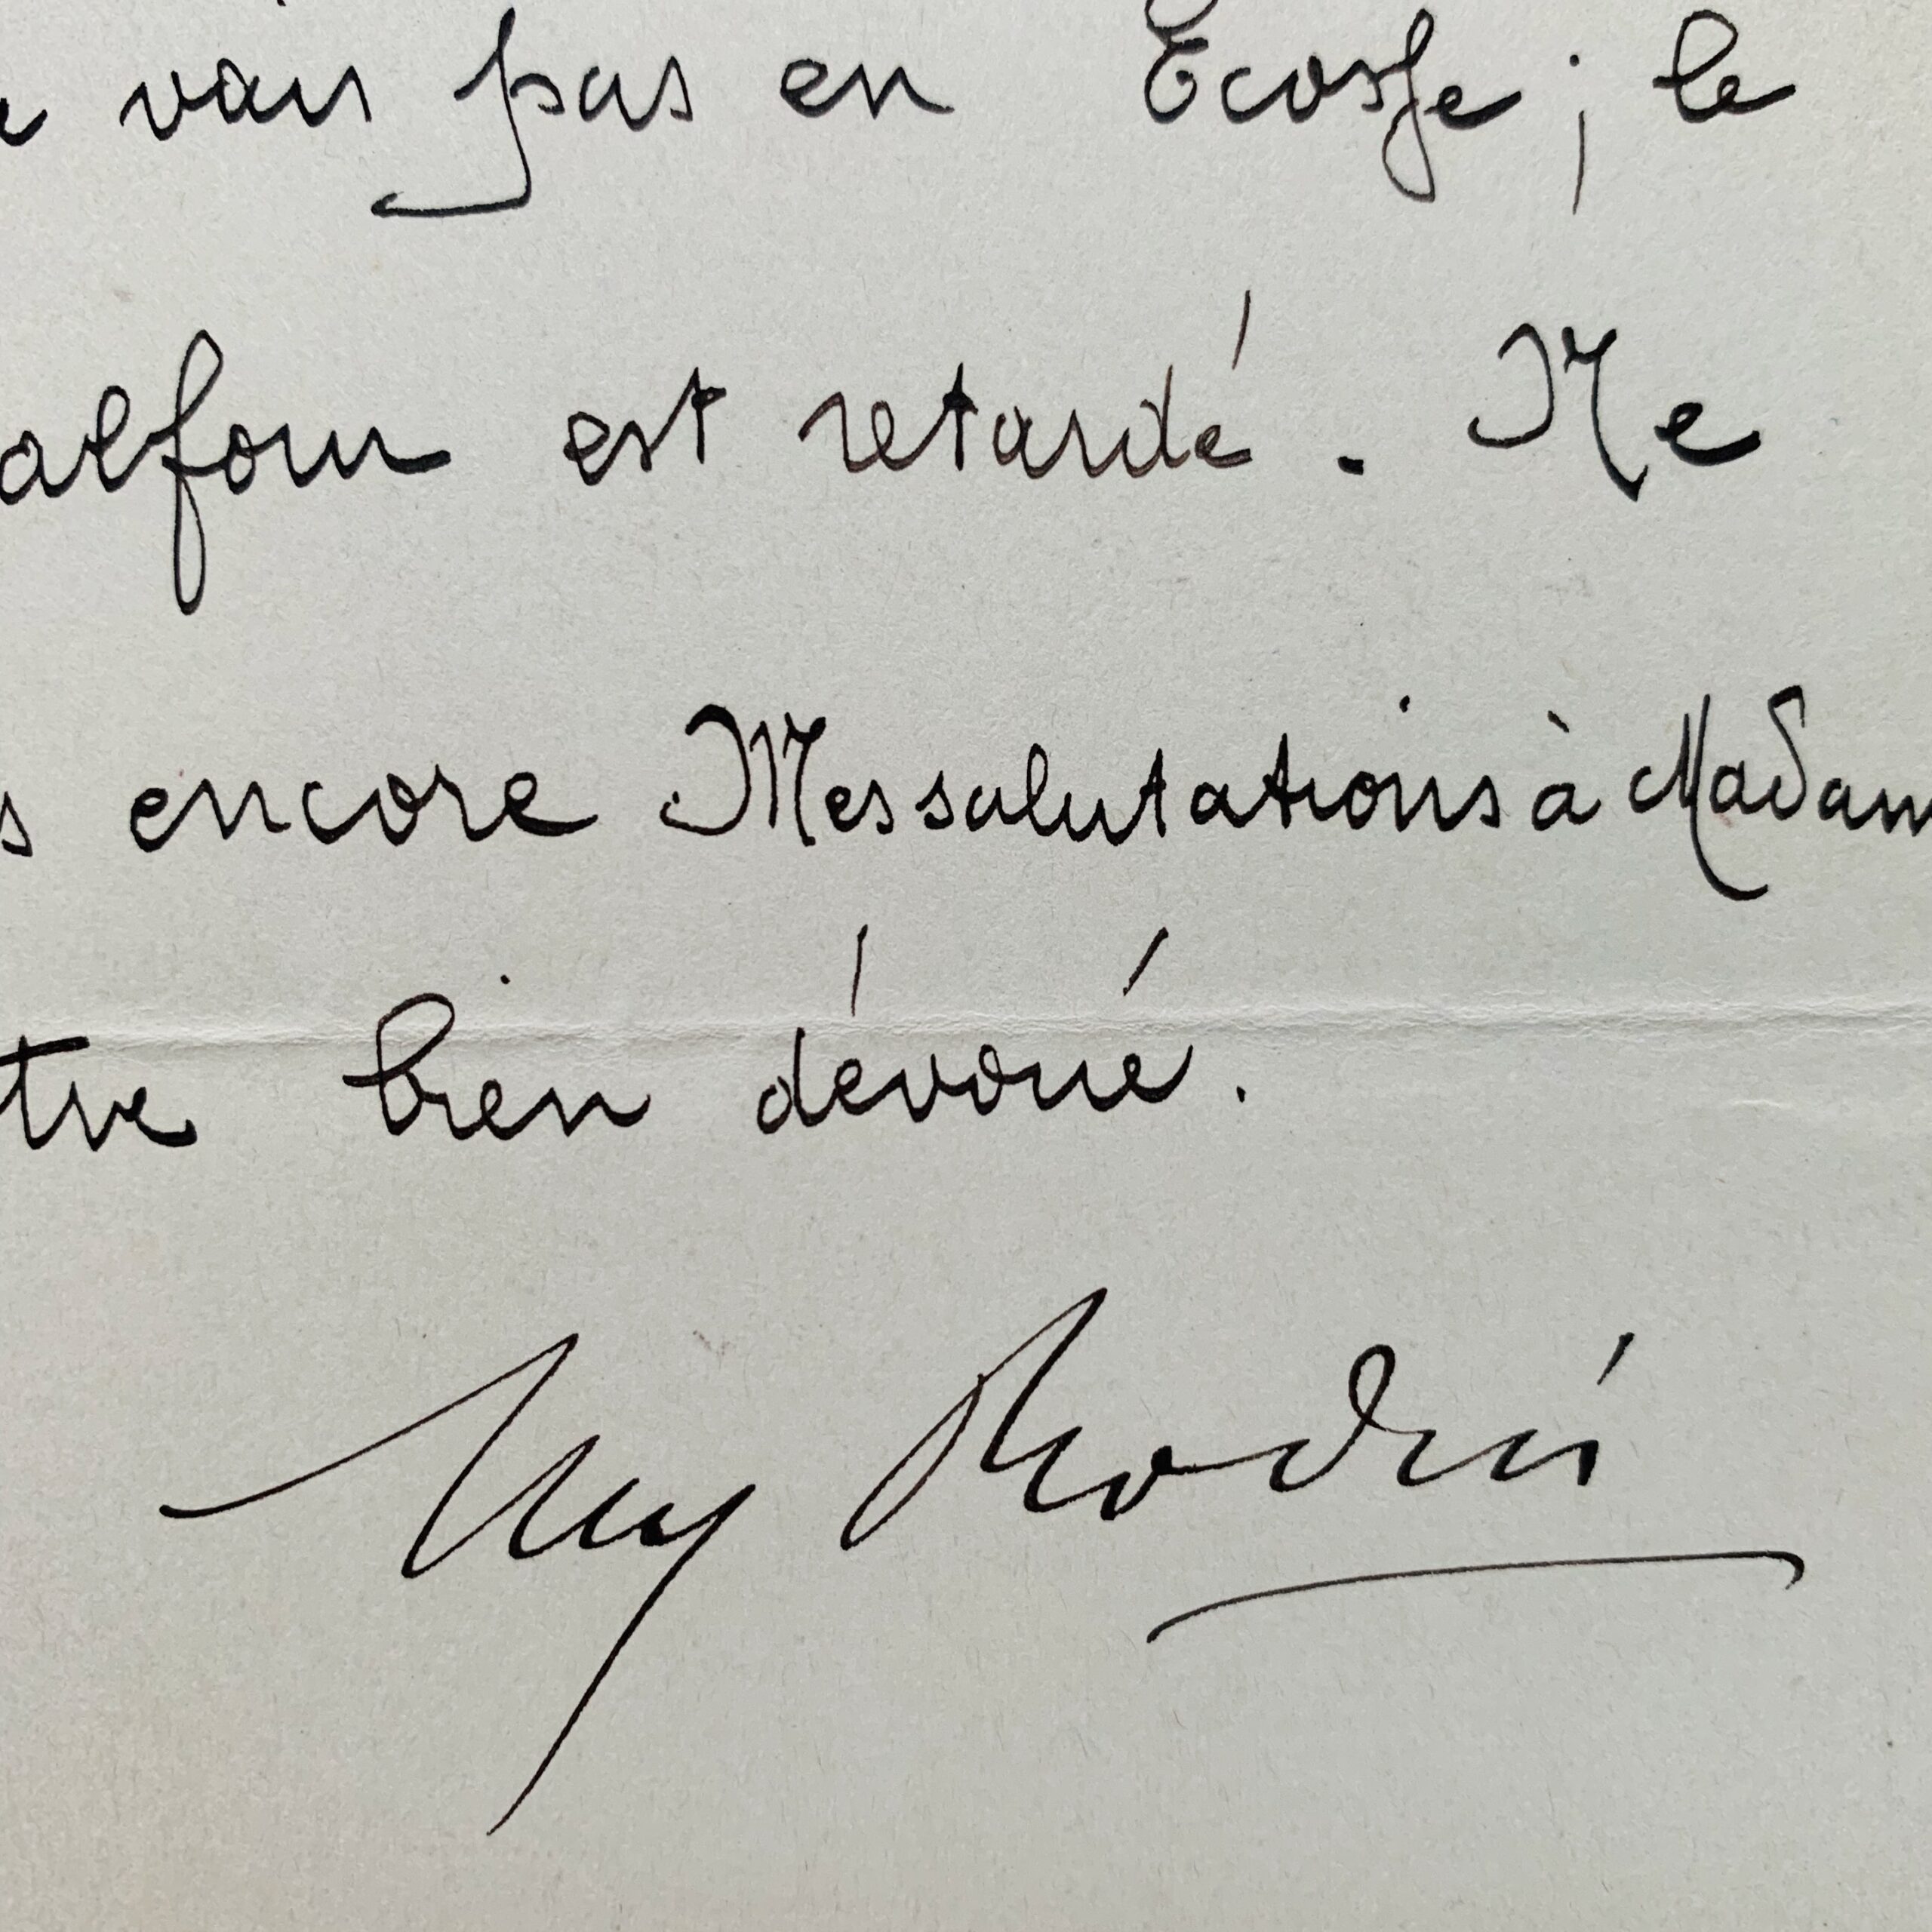 vais pas en Ecosse ; le
alfour est retardé. Me
s encore Mes salutations à Madam
tre bien dévoué.
Aug Rodin